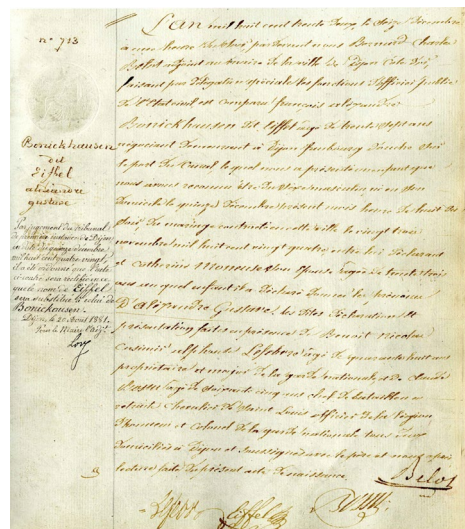 n° 713
Bonickhausen
dit
Eiffel
alexandre
gustave
Par jugement du Tribunal
de première instance de Dijon
en date du quinze décembre
mil huit cent quatre vingt,
il a été ordonné que l'acte
ci-contre sera rectifié en ce
que le nom de Eiffel
sera substitué à celui de
Bonickausen.
Dijon, le 20 Août 1881.
Pour le Maire
L'an mil huit cent trente deux, le seize Décembre
à une heure de par devant nous Bernard Charles
adjoint au maire de la ville de Dijon Côte d'or,
faisant par Délégation spéciale les fonctions d'officier public
de l'état civil est comparu françois alexandre
Bonickhausen dit Eiffel âgé de trente sept ans
négociant demeurant à Dijon faubourg
le port du Canal lequel nous a présenté un enfant que
nous avons reconnu être du sexe masculin né en son
domicile le quinze Décembre présent mois heure de
de mariage contracté en cette ville le vingt trois
novembre mil huit cent vingt quatre entre lui Déclarant
et Catherine Moneuse son Epouse âgée de trente trois
ans auquel enfant il a Déclaré Donner les prénoms
D'alexandre Gustave, les Dites Déclaration et
présentation faites en présence de Benoit Nicolas
Lefebvre âgé de quarante huit ans
propriétaire et major de la garde nationale, et de Claude
âgé de soixante cinq ans chef de bataillon en
retraite Chevalier de Saint Louis officier de la légion
d'honneur et Colonel de la garde nationale tous Deux
domiciliés à Dijon et soussignés avec le père et nous après
lecture faite du présent acte de naissance.
Eiffel